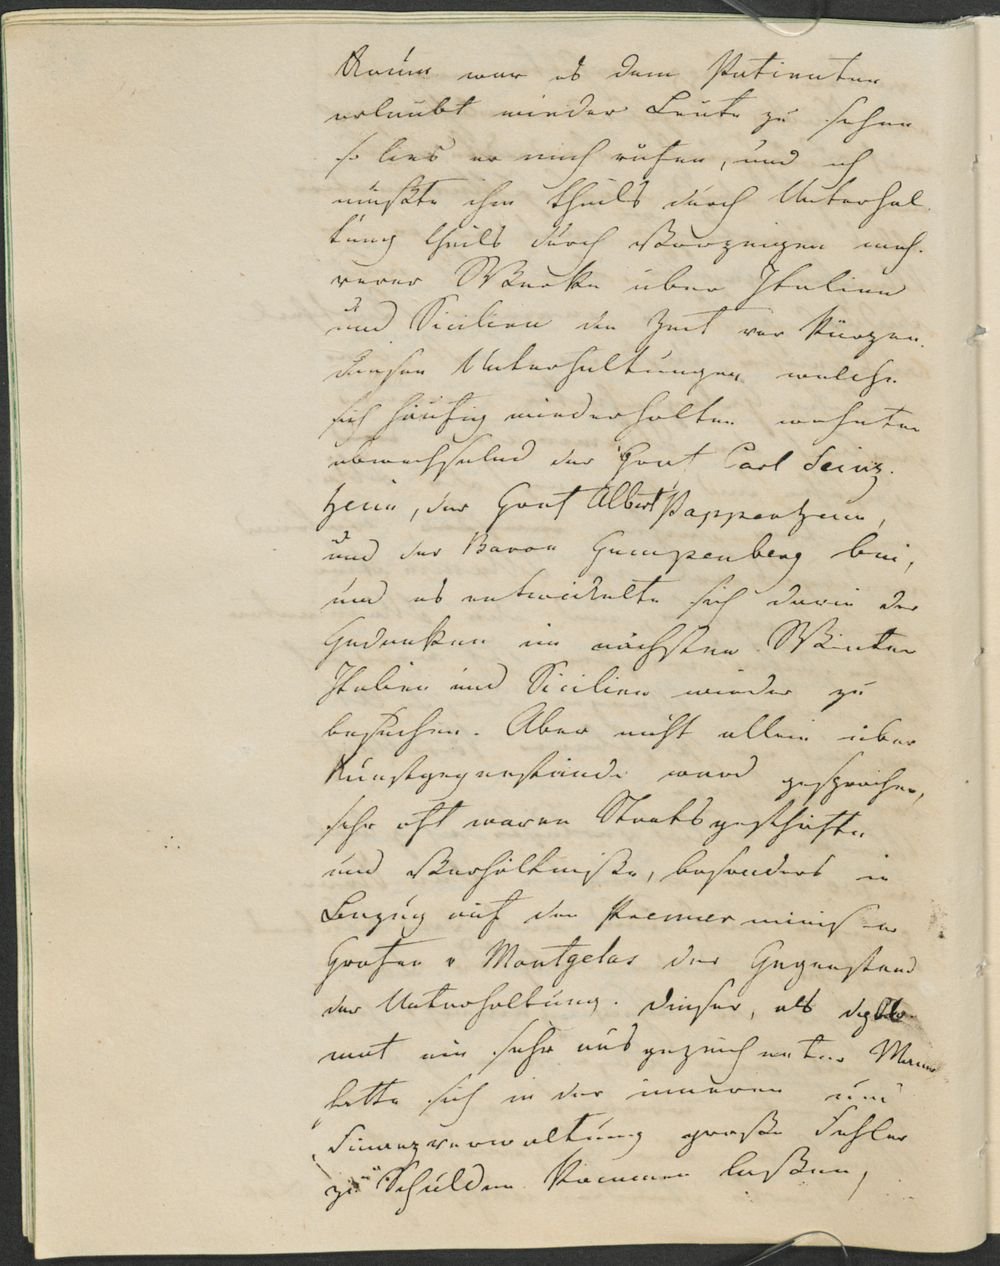 Kaum war es dem Patienten
erlaubt wieder Leute zu sehen
so lies er mich rufen, und ich
mußte ihm theils durch Unterhal¬
tung theils durch Vorzeigen meh¬
rerer Werke über Italien
und Sicilien die Zeit ver kürzen.
diesen Unterhaltungen welche
sich häufig wiederholten wohnten
abwechselnd der Graf Carl Seins¬
heim, der Graf Albert Pappenheim,
und der Baron Gumppenberg bei,
und es entwickelte sich darin der
Gedanken im nächsten Winter
Italien und Sicilien wieder zu
besuchen. Aber nicht allein über
Kunstgegenstände ward gesprochen,
sehr oft waren Staatsgeschäfte
und Verhältniße, besonders in
Bezug auf den Premier minister
Grafen v Montgelas der Gegenstand
der Unterhaltung. dieser, als diplo¬
mat ein sehr ausgezeichneter Mann
hatte sich in der inneren und
Finanzverwaltung große Fehler
zu Schulden kommen laßen,